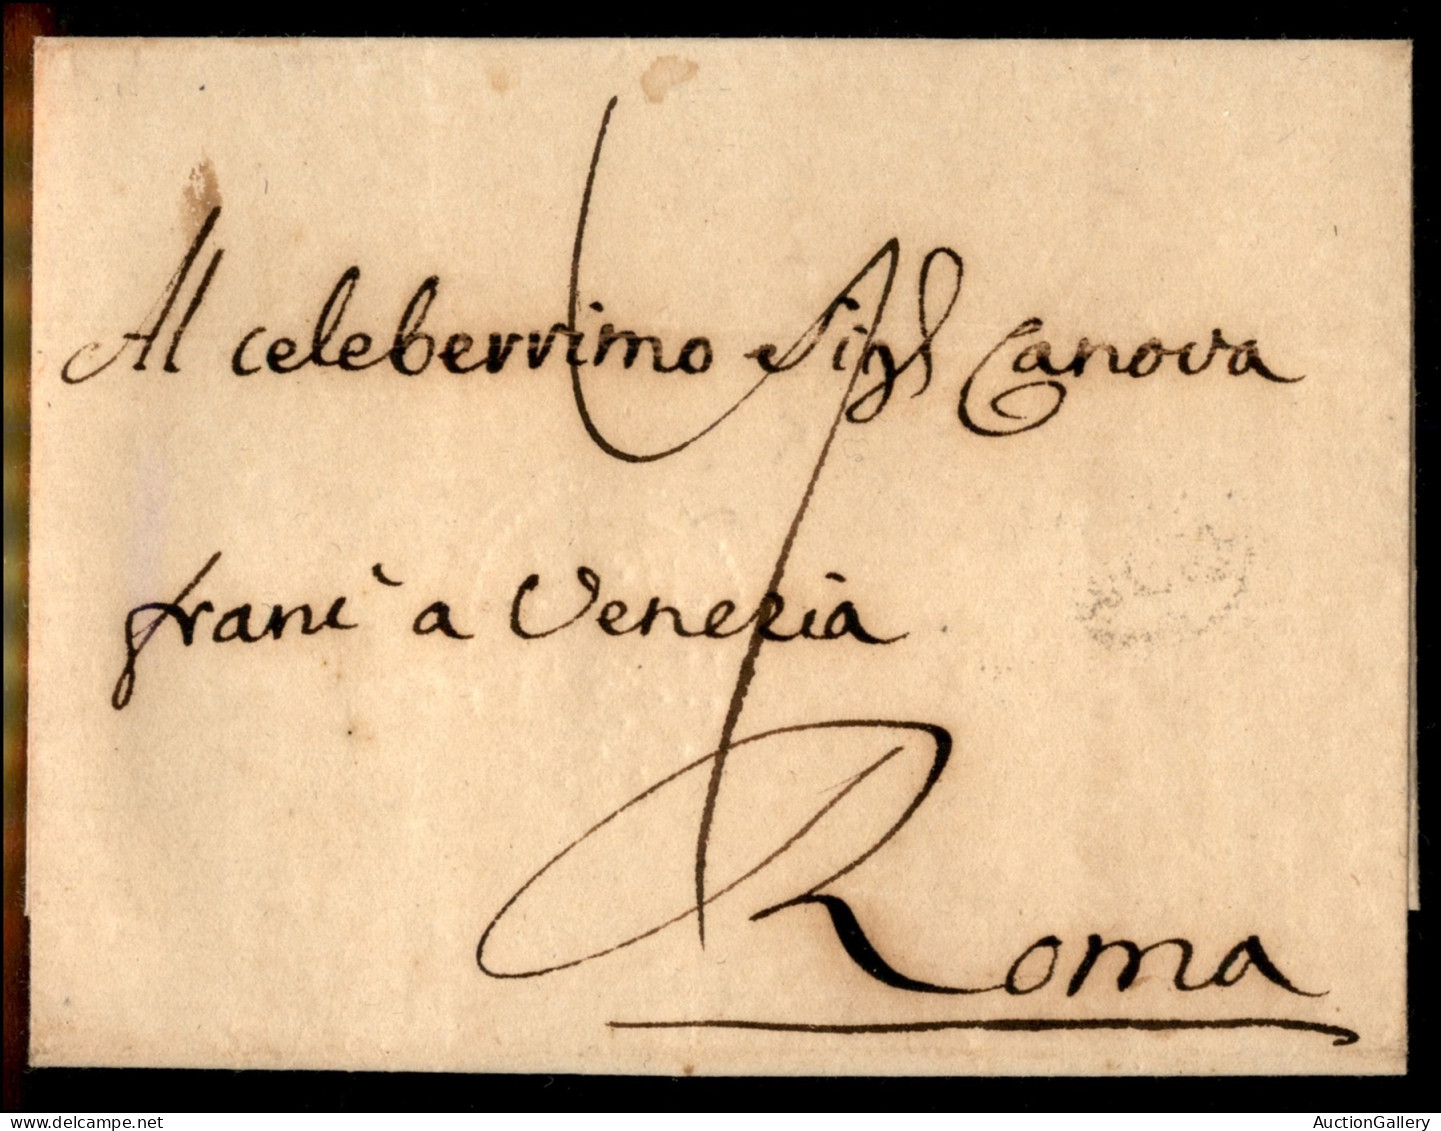 Al celeberrimo Sigl Canova
franc a Venezia
Roma
AuctionGallery
delcampe.net